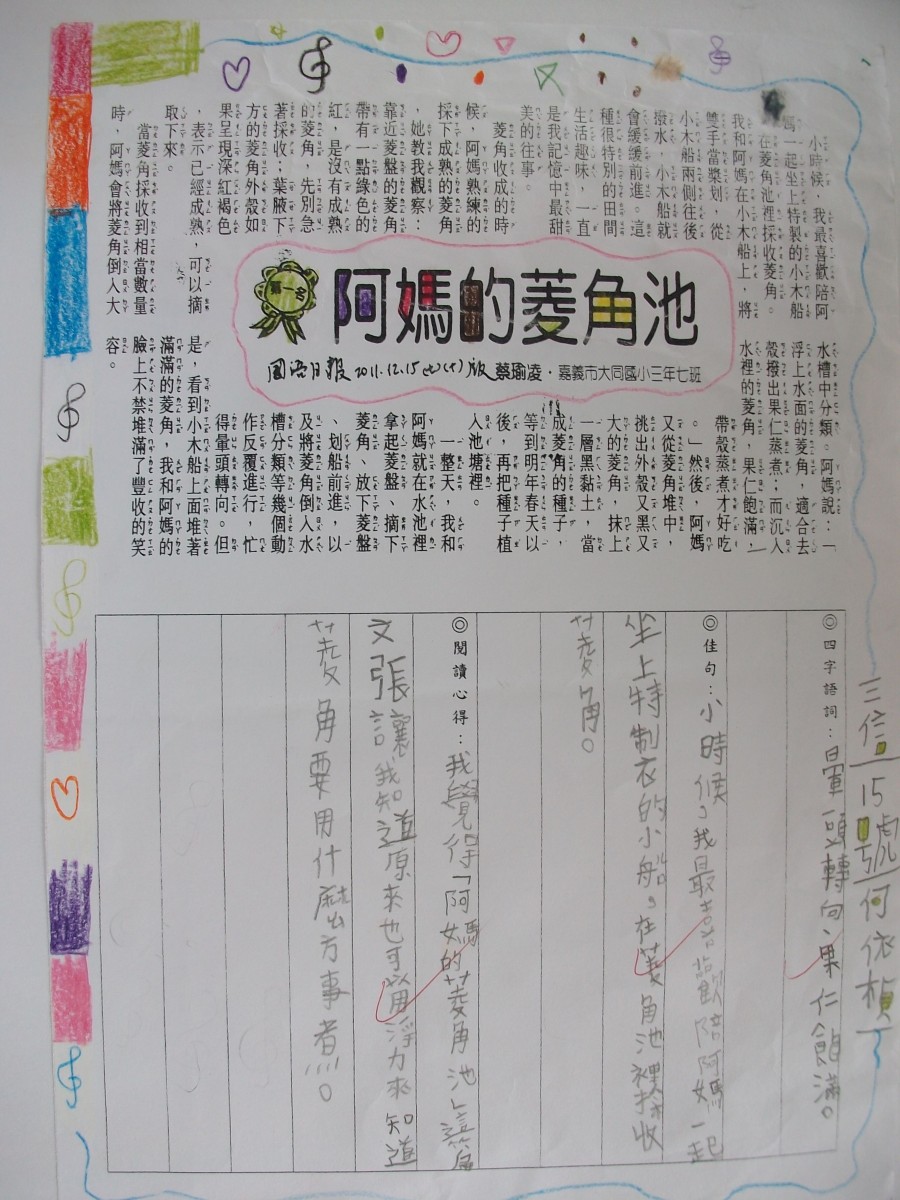 第一名
阿媽的菱角池
國語日報 2011.12.15 七(十)版 蔡瑜凌・嘉義市大同國小三年七班
小時候，我最喜歡陪阿
媽一起坐上特製的小木船
，在菱角池裡採收菱角。
我和阿媽在小木船上，將
雙手當槳划，從
小木船兩側往後
撥水，小木船就
會緩緩前進。這
種很特別的田間
生活趣味，一直
是我記憶中最甜
美的往事。
菱角收成的時
候，阿媽熟練的
採下成熟的菱角
，她教我觀察：
靠近菱盤的菱角
帶有一點綠色的
紅，是沒有成熟
的菱角，先別急
著採收；葉腋下
方的菱角外殼如
果呈現深紅褐色
，表示已經成熟，可以摘
取下來。
當菱角採收到相當數量
時，阿媽會將菱角倒入大
水槽中分類。阿媽說：「
浮上水面的菱角，適合去
殼撥出果仁蒸煮；而沉入
水裡的菱角，果仁飽滿，
帶殼蒸煮才好吃
。」然後，阿媽
又從菱角堆中，
挑出外殼又黑又
大的菱角，抹上
一層黑黏土，當
成菱角的種子，
等到明年春天以
後，再把種子植
入池塘裡。
一整天，我和
阿媽就在水池裡
拿起菱盤、摘下
菱角、放下菱盤
、划船前進，以
及將菱角倒入水
槽分類等幾個動
作反覆進行，忙
得暈頭轉向。但
是，看到小木船上面堆著
滿滿的菱角，我和阿媽的
臉上不禁堆滿了豐收的笑
容。
三信 15號 何依楨
◎四字語詞：暈頭轉向、果仁飽滿。
◎佳句：小時候，我最喜歡陪阿媽一起
坐上特制衣的小船，在菱角池裡採收
菱角。
◎閱讀心得：我覺得「阿媽的菱角池」這篇
文張讓我知道原來也可以用浮力來知道
菱角要用什麼方事煮。